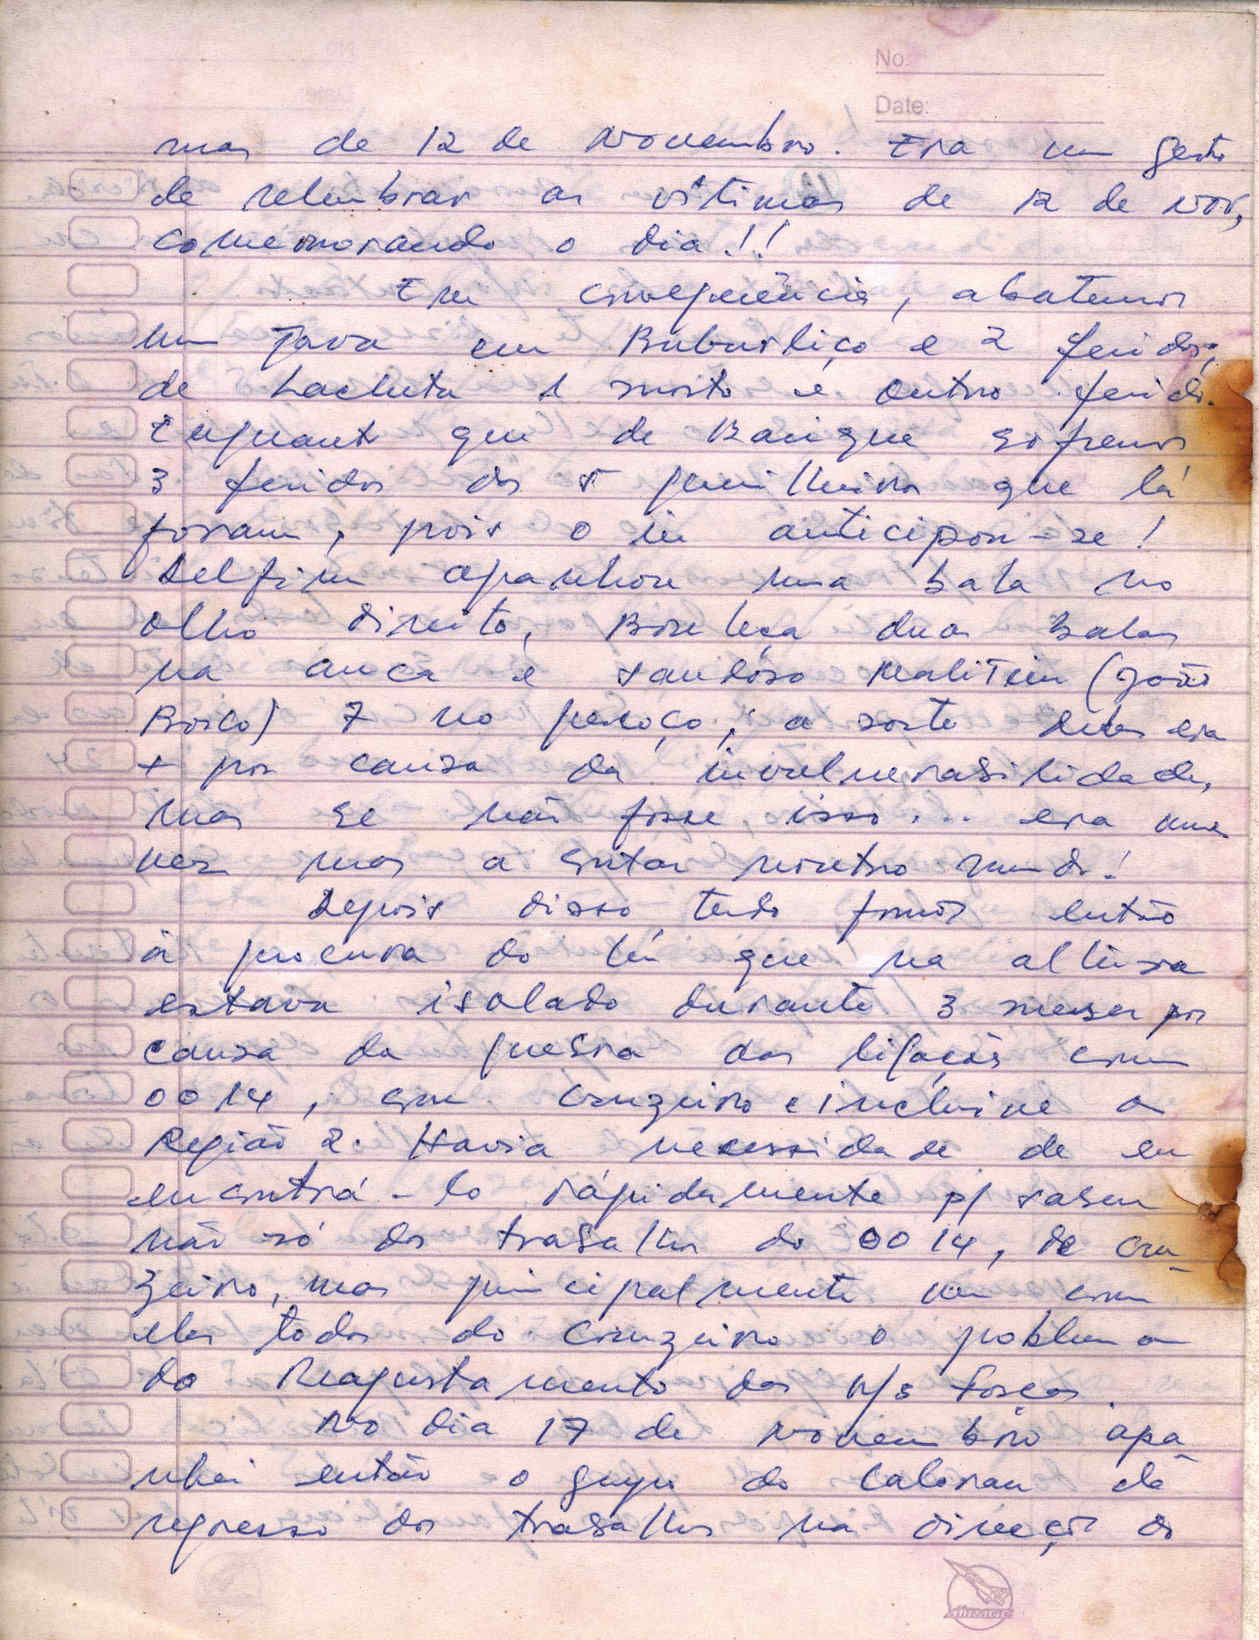 No:
Date:
mas de 12 de Novembro. Era um gesto
de relembrar as vítimas de 12 de Nov,
comemorando o dia!!
Em consequência, abatemos
um Java em Buburliço e 2 feridos;
de Lacluta 1 morto e outro ferido.
Enquanto que de Baigue sofremos
3 feridos dos 5 guerrilheiros que lá
foram, pois o in anticipou-se!
Delfim apanhou uma bala no
olho direito, Boneleça duas balas
na anca e saudoso Malitin (João
Bosco) 7 no pescoço; a sorte deles era
+ por causa da invulnerabilidade,
mas se não fosse isso... era uma
vez mas a contar noutro mundo!
Depois disso tudo fomos então
à procura do Lú que na altura
estava isolado durante 3 meses por
causa da quebra das ligações com
0014, com Cruzeiro e inclusive a
Região 2. Havia necessidade de eu
encontrá-lo rápidamente p/ saber
não só dos trabalhos do 0014, de Cru-
zeiro, mas principalmente ver com
eles todos do Cruzeiro o problema
do Reajustamento das n/s forças.
No dia 17 de Novembro apa-
nhei então o grupo do Calohan de
regresso dos trabalhos na direcção do